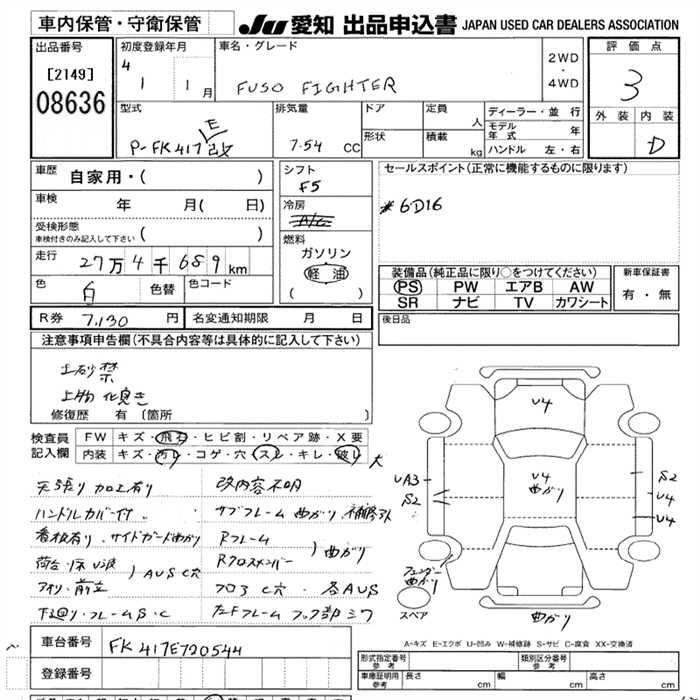 車内保管・守衛保管
JU 愛知 出品申込書 JAPAN USED CAR DEALERS ASSOCIATION
出品番号
[2149]
08636
初度登録年月
4 1 1 月
車名・グレード
FUSO FIGHTER
2WD
・
4WD
評価点
3
外装 内装
D
型式
P-FK417改
E
排気量
7.54 CC
ドア
形状
定員
人
積載
kg
ディーラー・並行
モデル年式 年
ハンドル 左・右
車歴
自家用・( )
車検
年 月( 日)
受検形態
車検付きのみ記入して下さい ( )
走行
27万4千689km
色
白
色替
色コード
シフト
F5
冷房
A/C
燃料
ガソリン
軽油
( )
セールスポイント(正常に機能するものに限ります)
#6D16
装備品(純正品に限り○をつけてください)
PS PW エアB AW
SR ナビ TV カワシート
新車保証書
有・無
R券 7,130 円
名変通知期限 月 日
後日品
注意事項申告欄(不具合内容等は具体的に記入して下さい)
土砂禁
上物
修復歴 有 [箇所 ]
検査員
記入欄
FW キズ・飛石・ヒビ割・リペア跡・X要
内装 キズ・汚レ・コゲ・穴・スレ・キレ・破レ 大
天張り加工有り
改内容不明
ハンドルカバー付
サブフレーム曲がり 補修跡
看板有り・サイドガード曲がり
Rフレーム
荷台・床U波
Rクロスメンバー
曲がり
AUSC穴
フロアC穴・各AUS
下廻り・フレームS・C
フレームフック部シワ
U4
U4
曲がり
UA3
S2
S2
U4
U4
フェンダー
曲がり
スペア
曲がり
A-キズ E-エクボ U-凹み W-補修跡 S-サビ C-腐食 XX-交換済
車台番号
FK417E720544
登録番号
形式指定番号
参考
類別区分番号
参考
車庫証明用
参考
長さ cm
幅 cm
高さ cm